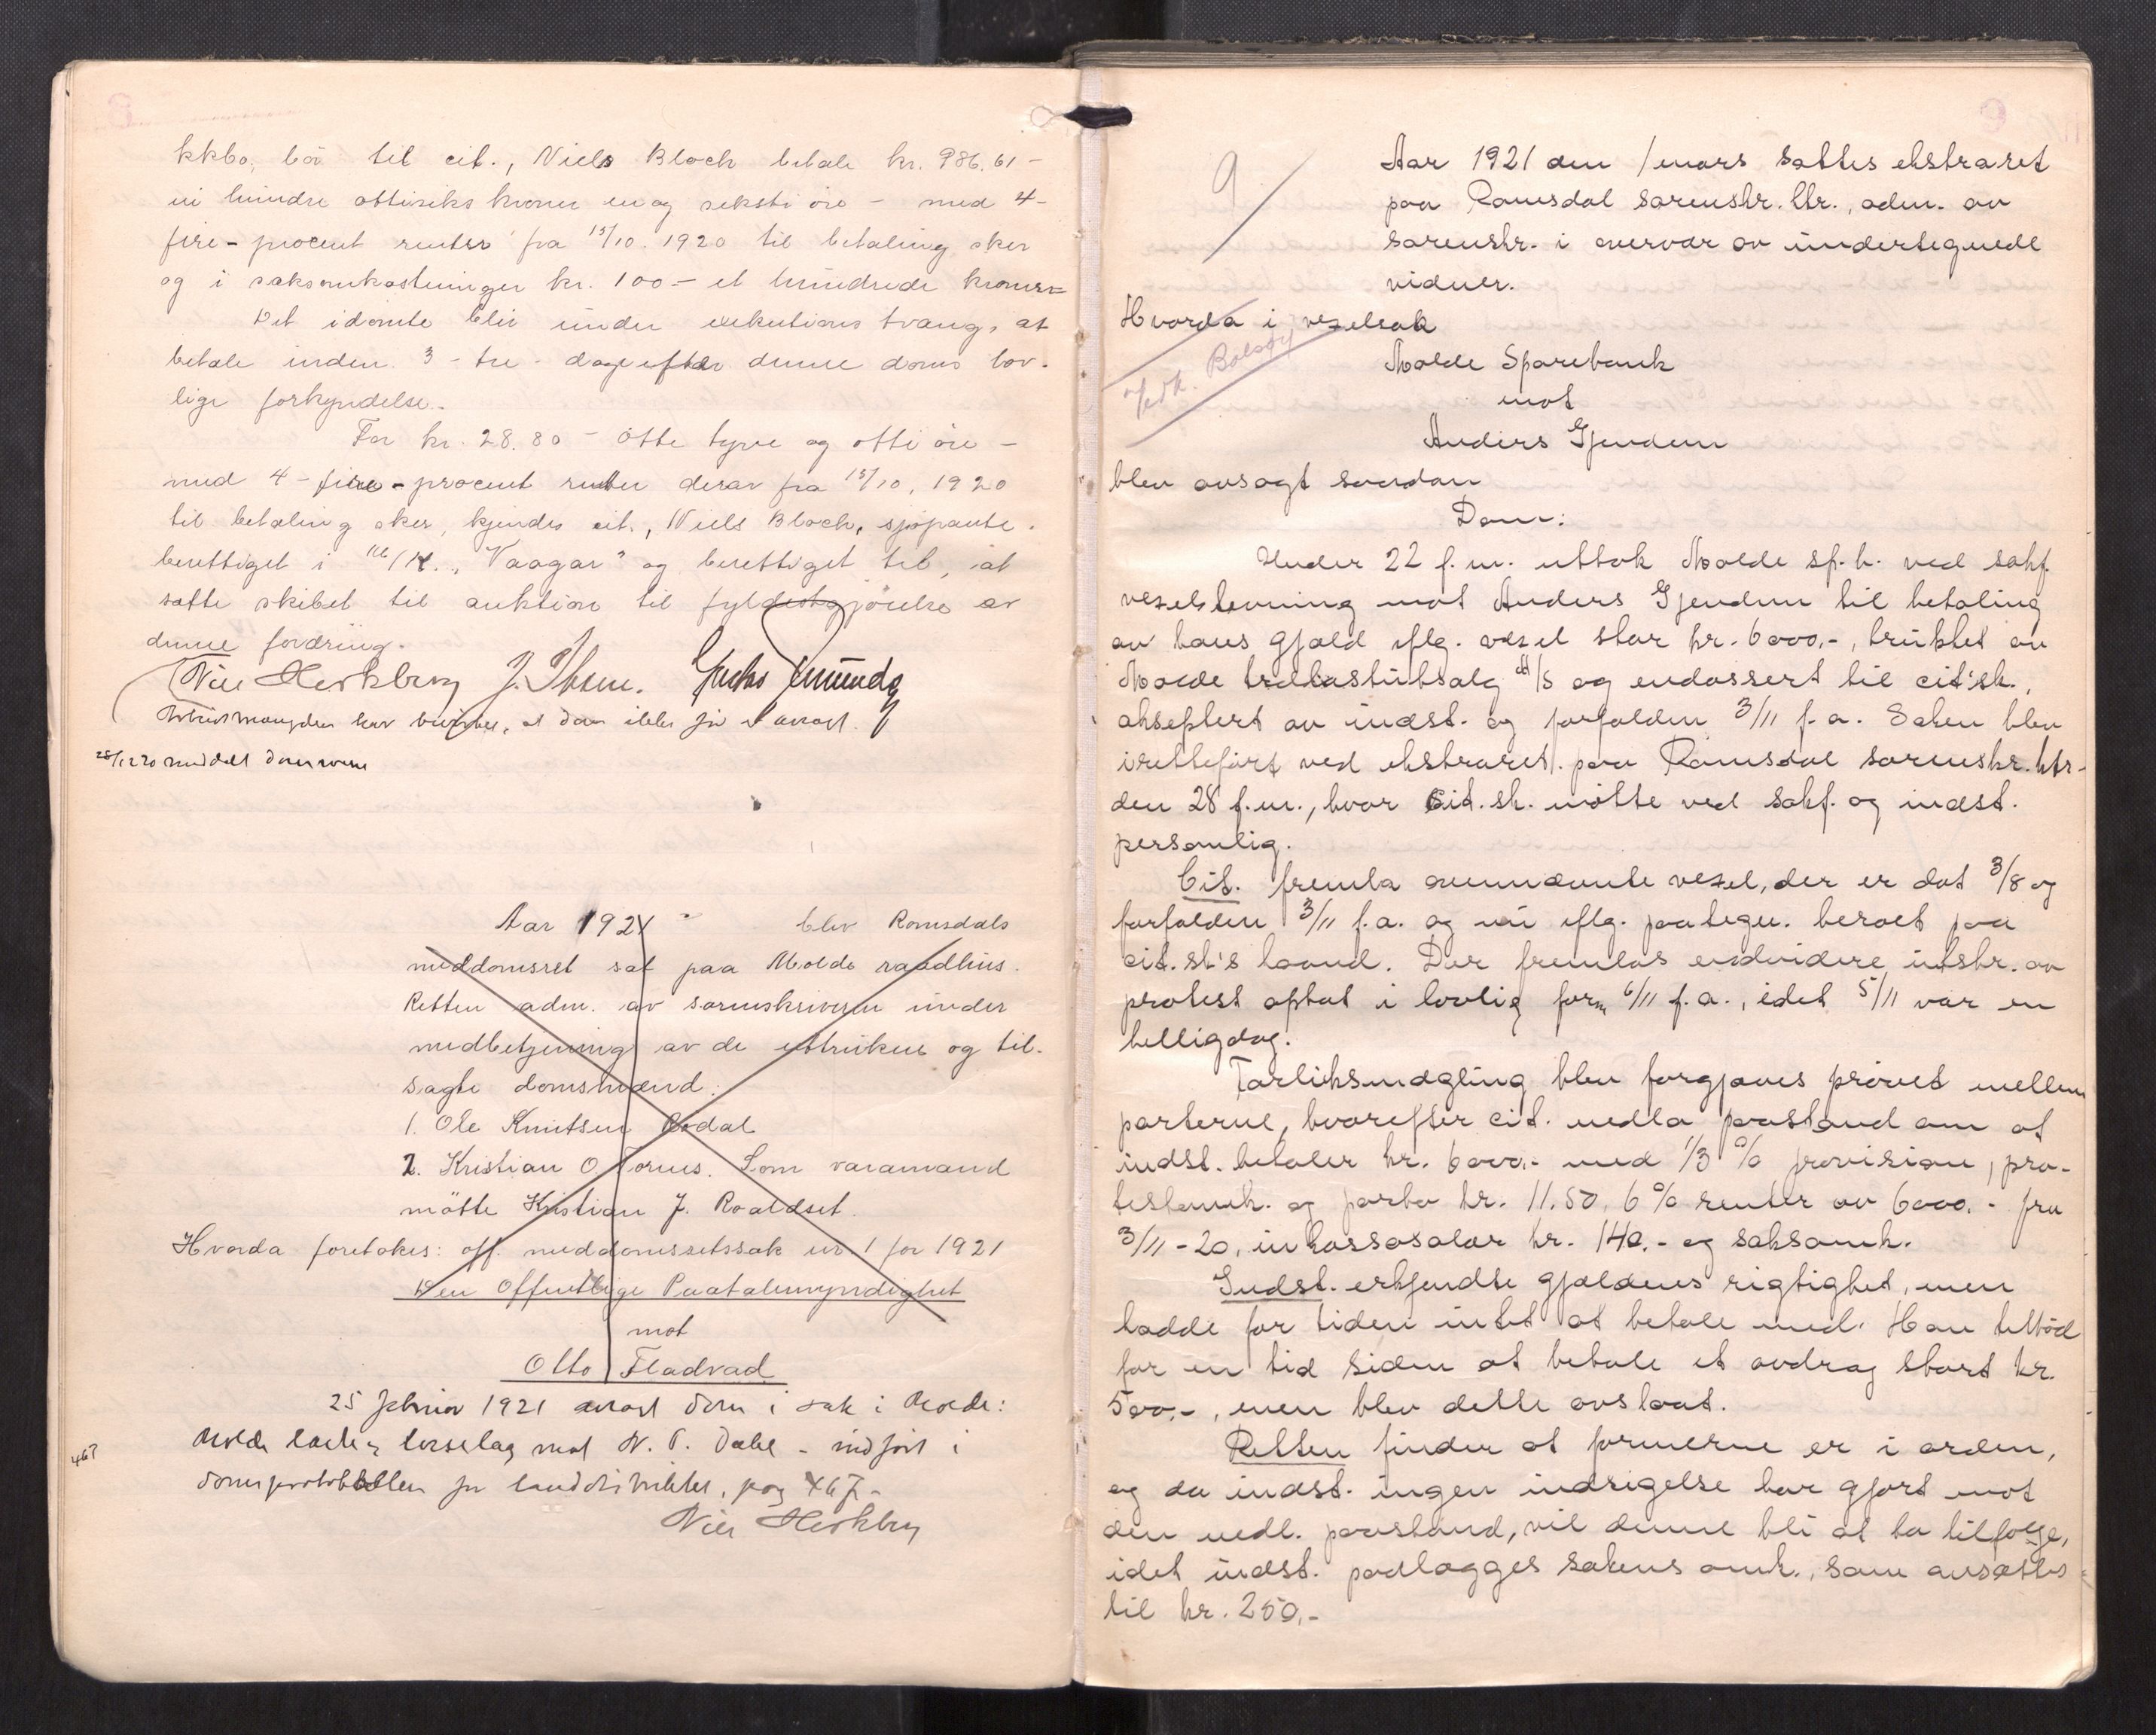 kkbo, bör til cit., Niels Bloch betale kr. 986.61 -
ni hundre ottiseks kroner en og seksti öre - med 4 -
fire - procent renter fra 15/10. 1920 til betaling sker
og i saksomkostninger kr. 100 - et hundrede kroner =
Det idömte blir under exekutions tvang, at
betale inden 3 - tre - dage efter denne doms lov-
lige forkyndelse.
For kr. 28.80 - Otte tyve og otti öre -
med 4 - fire - procent renter derav fra 15/10, 1920
til betaling sker, kjendes cit., Niels Bloch, sjöpante-
berettiget i M/K. "Vaagar" og berettiget til, at
sætte skibet til auktion til fyldestgjörelse av
denne fordring.
J. Ibsen.
at dom ikke för er avsagt.
28/12 20 meddelt
Aar 1921 - blev Romsdals
meddomsret sat paa Molde raadhus.
Retten adm. av sorenskriveren under
medbetjening av de uttrukne og til-
sagte domsmænd:
1. Ole Knutsen
2. Kristian O. Tornes. Som varamand
mötte Kristian J. Roaldset.
Hvorda foretokes: off. meddomsretssak nr 1 for 1921
Den Offentlige Paatalemyndighet
mot
Otto Fladvad
25 februar 1921 avsagt dom i sak i Molde:
mot N. P. Dahl - indfört i
467
domsprotokollen for landdistriktet, pag 467 -
9
Aar 1921 den 1 mars sattes ekstraret
paa Romsdal sorenskr. ktr., adm. av
sorenskr. i overvær av undertegnede
vidner.
Hvorda i vexelsak
Molde Sparebank
mot
Anders Gjendem
blev avsagt saadan
Dom:
Under 22 f.m. uttok Molde sp.b. ved sakf.
vexelstevning mot Anders Gjendem til betaling
av hans gjæld iflg. vexel stor kr. 6000.-, trukket av
Molde trælastutsalg /8 og endossert til cit'sk.,
akseptert av indst. og forfalden 3/11 f.a. Saken blev
iretteført ved ekstraret paa Romsdal sorenskr. ktr.
den 28 f.m., hvor Cit.sk. møtte ved sakf. og indst.
personlig.
Cit. fremla ovennævnte vexel, der er dat 3/8 og
forfalden 3/11 f.a. og nu iflg. paategn. beroet paa
cit.sk's haand. Der fremlas endvidere utskr. av
protest optat i lovlig form 6/11 f.a., idet 5/11 var en
helligdag.
Forliksmægling blev forgjæves prøvet mellem
parterne, hvorefter cit. nedla paastand om at
indst. betaler kr. 6000.- med 1/3 % provision, pro-
testomk. og porto kr. 11.50, 6 % renter av 6000.- fra
3/11 - 20, inkassosalær kr. 140.- og saksomk.
Indst. erkjendte gjældens rigtighet, men
hadde for tiden intet at betale med. Han tilbød
for en tid siden at betale et avdrag stort kr.
500.-, men blev dette avslaat.
Retten finder at formerne er i orden,
og da indst. ingen indsigelse har gjort mot
den nedl. paastand, vil denne bli at ta tilfølge,
idet indst. paalægges sakens omk., som ansættes
til kr. 250.-